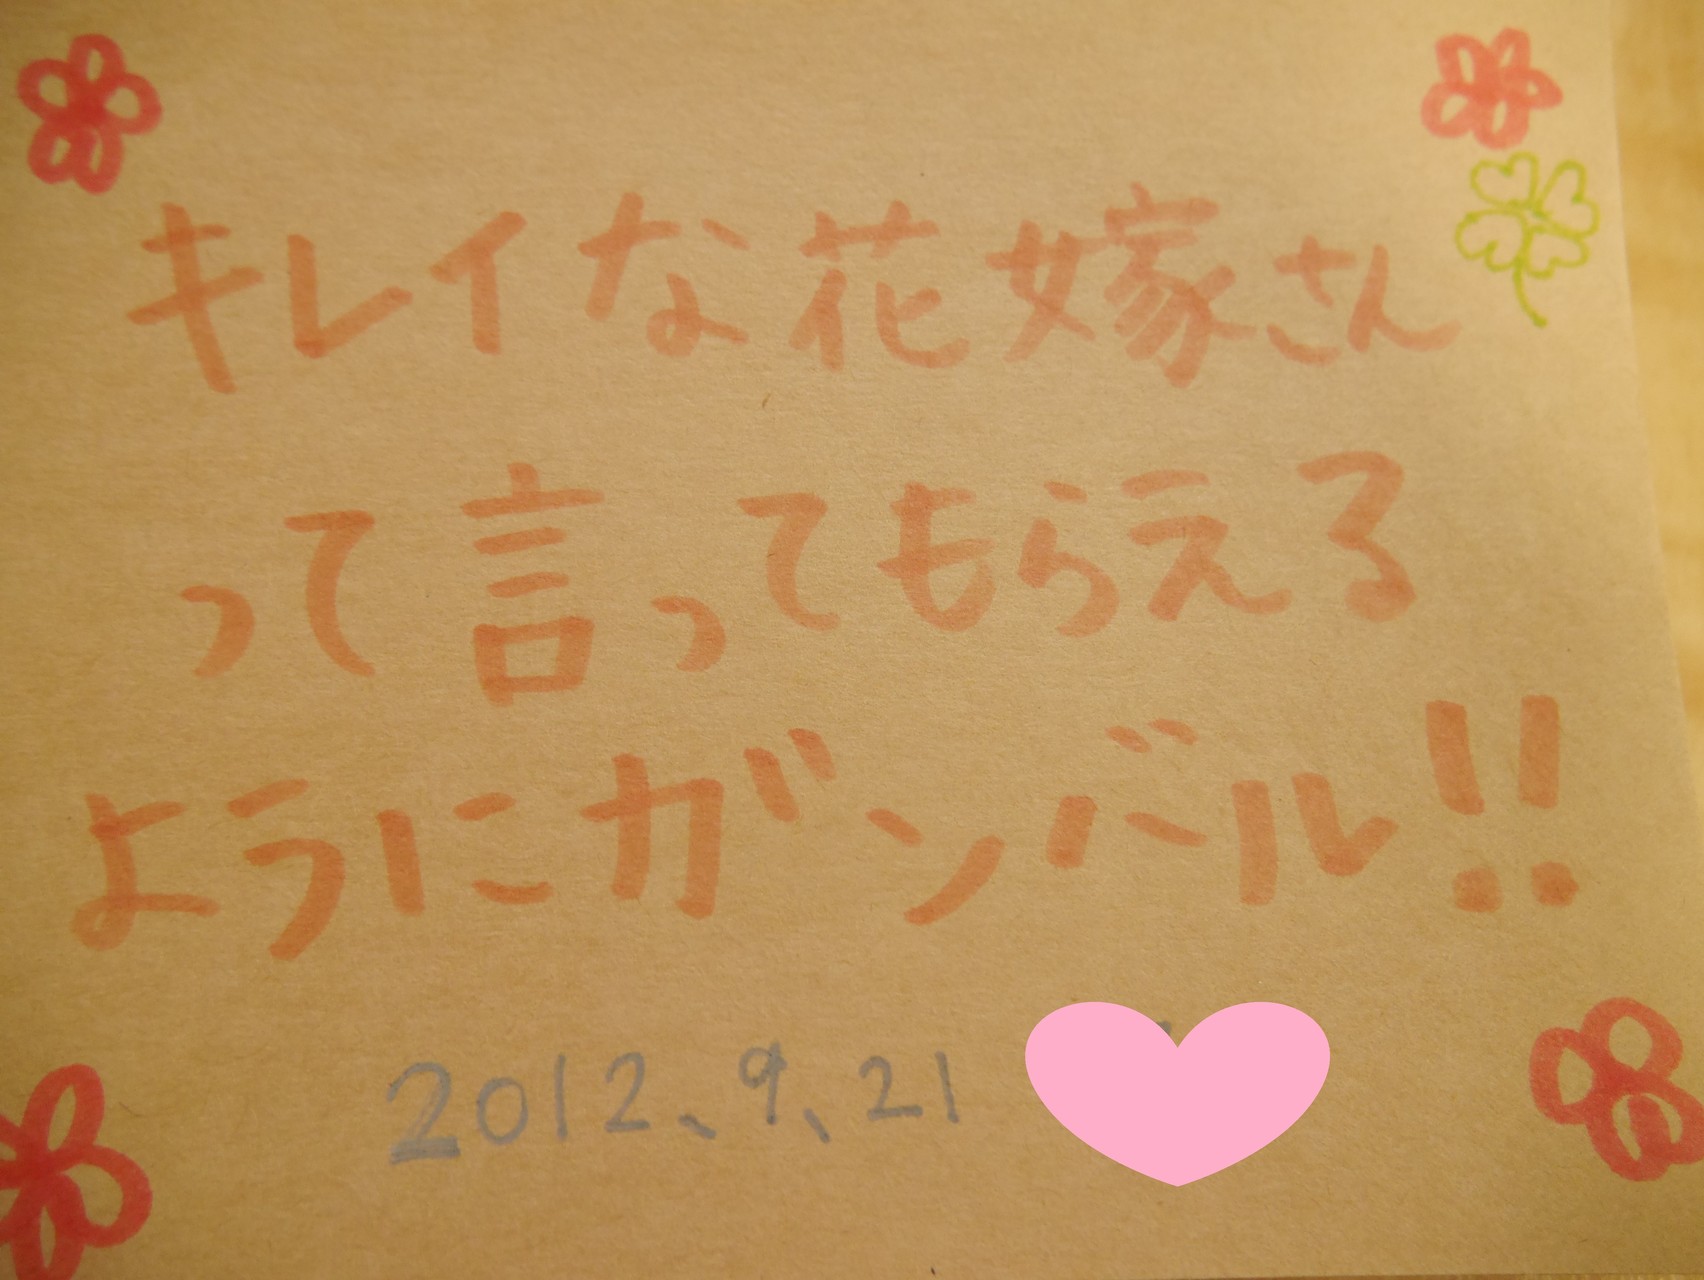 キレイな花嫁さん
って言ってもらえる
ようにガンバル!!
2012、9、21